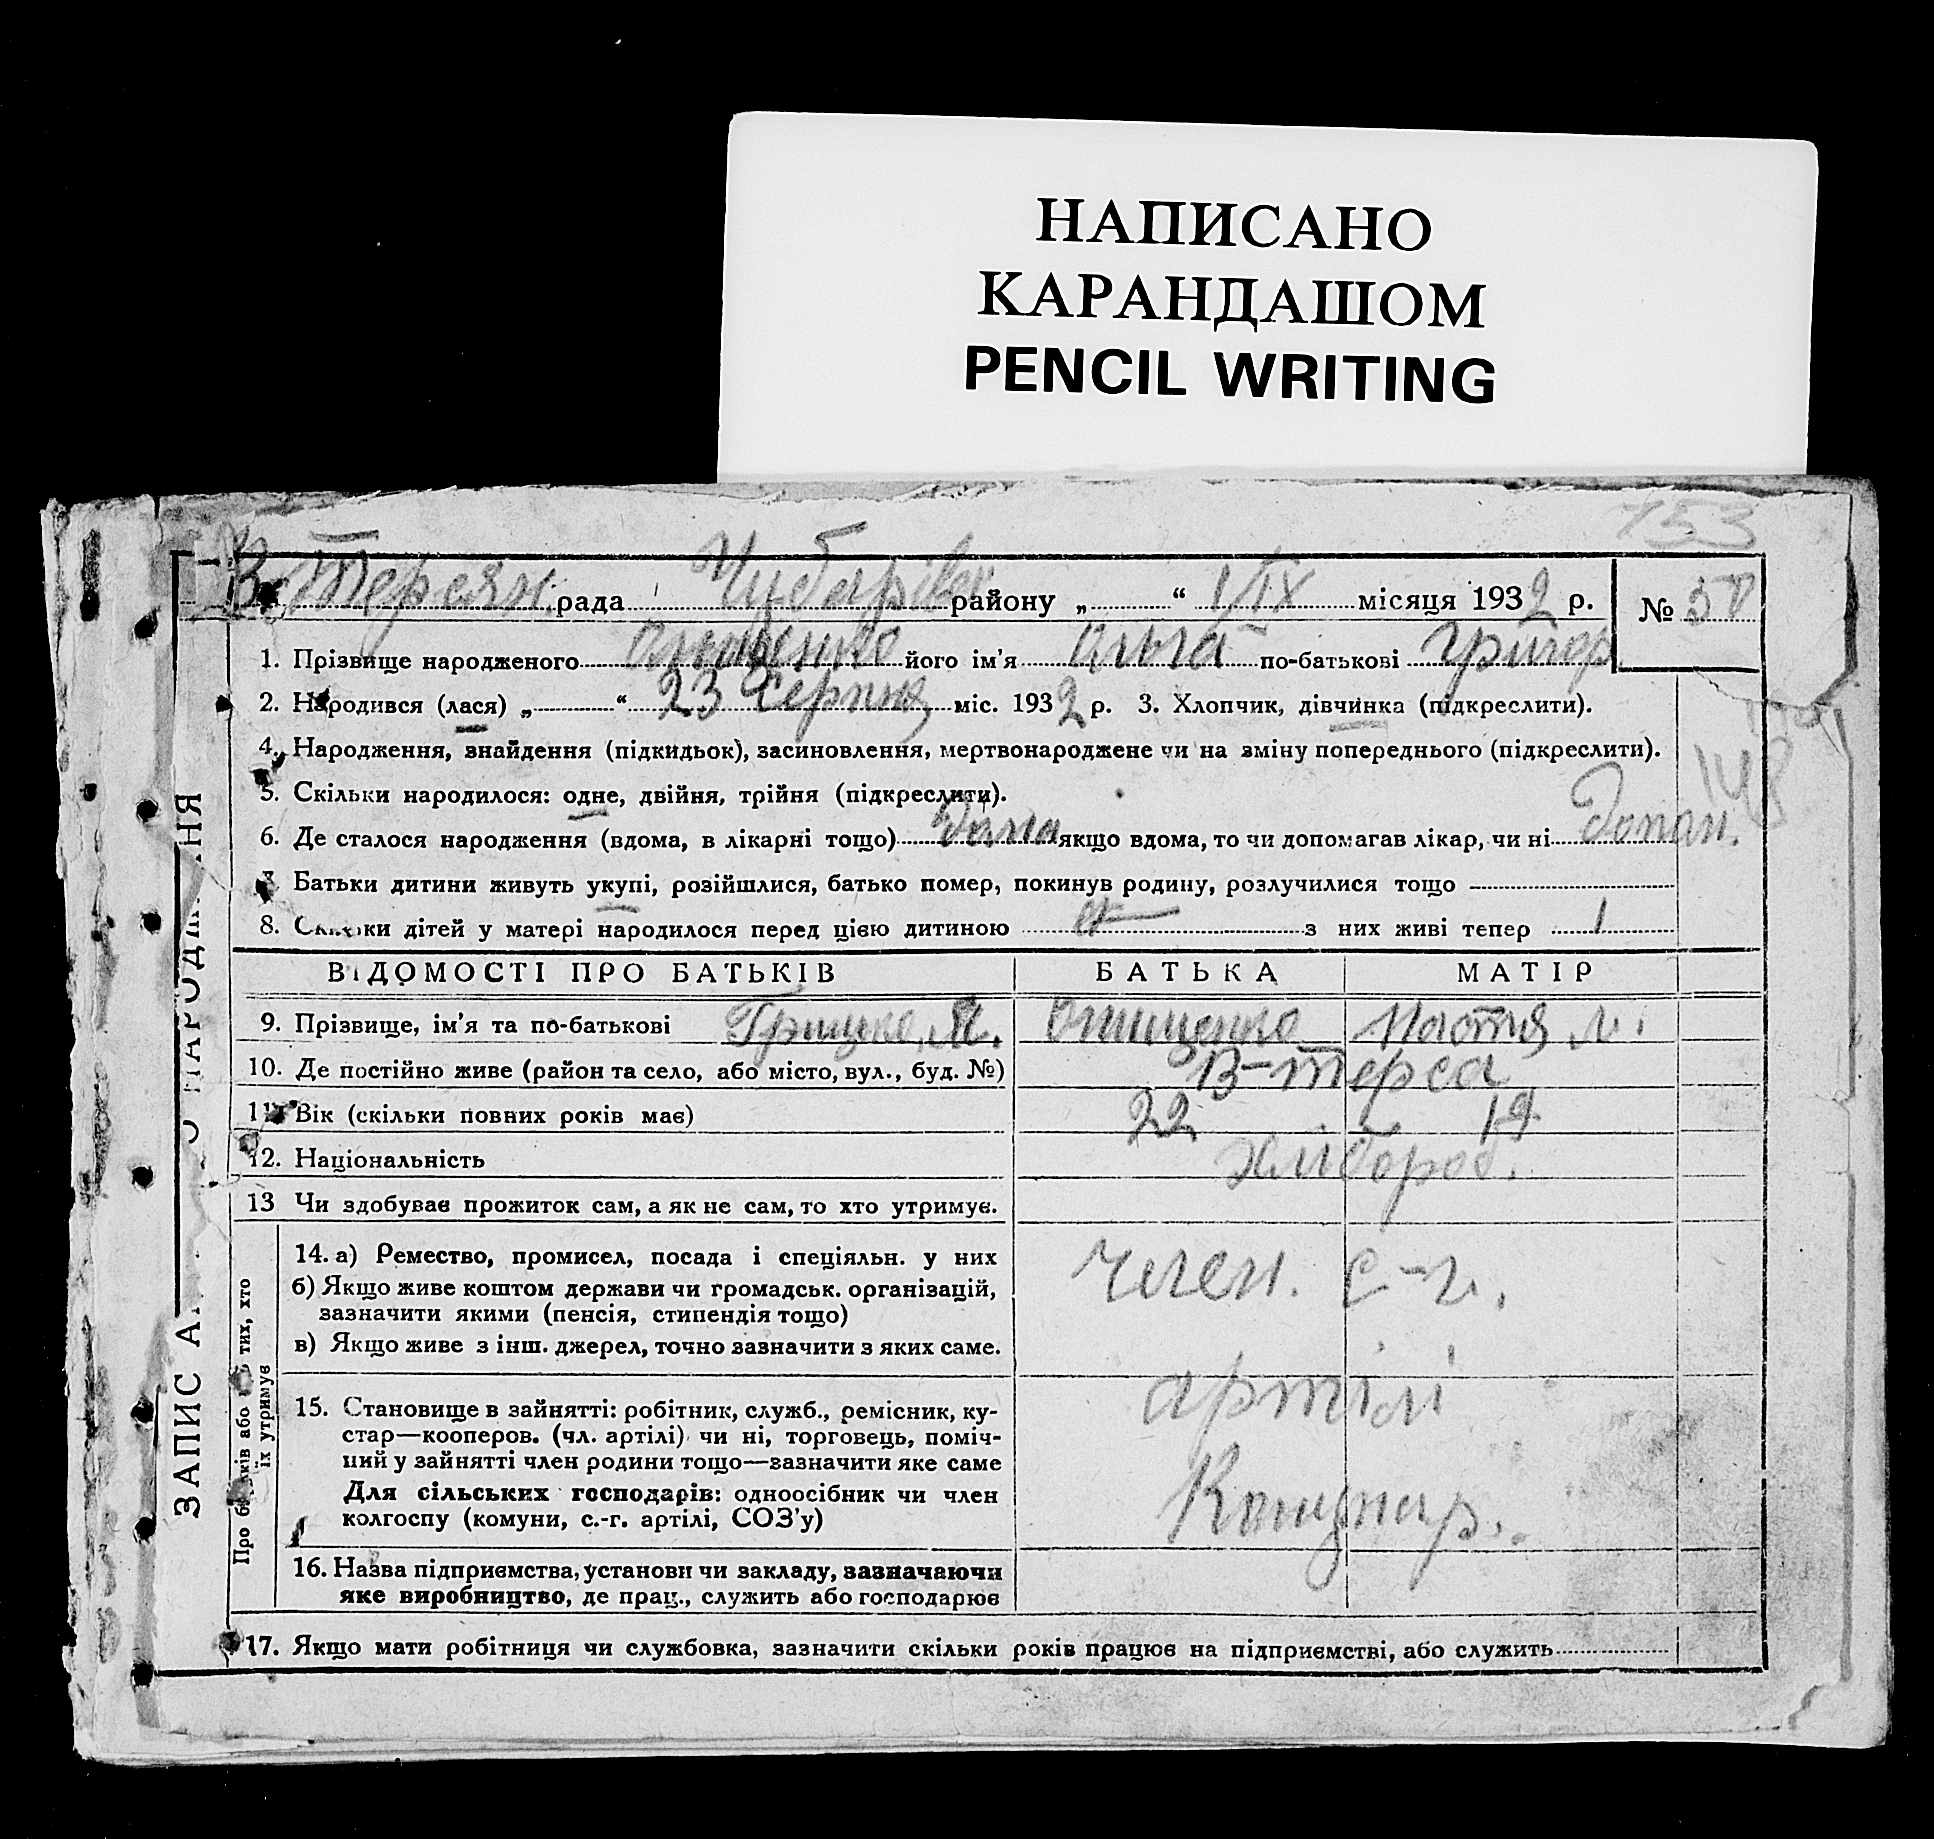 НАПИСАНО
КАРАНДАШОМ
PENCIL WRITING
153
В. Терсян. рада Чубарівск району „ “ 1/IX місяця 1932 р. № 50
1. Прізвище народженого Онищенко його ім’я Ольга по-батькові Григор
2. Народився (лася) „ “ 23 Серпня міс. 1932 р. 3. Хлопчик, дівчинка (підкреслити).
4. Народження, знайдення (підкидьок), засиновлення, мертвонароджене чи на зміну попереднього (підкреслити).
148
5. Скільки народилося: одне, двійня, трійня (підкреслити).
6. Де сталося народження (вдома, в лікарні тощо) Дома якщо вдома, то чи допомагав лікар, чи ні
7. Батьки дитини живуть укупі, розійшлися, батько помер, покинув родину, розлучилися тощо
8. Скільки дітей у матері народилося перед цією дитиною з них живі тепер 1
ВІДОМОСТІ ПРО БАТЬКІВ БАТЬКА МАТІР
9. Прізвище, ім’я та по-батькові Грицко Я. Онищенко Мотя
10. Де постійно живе (район та село, або місто, вул., буд. №) В-Терса
11. Вік (скільки повних років має) 22 19
12. Національність Хлібороб.
13 Чи здобуває прожиток сам, а як не сам, то хто утримує.
14. а) Ремество, промисел, посада і спеціяльн. у них член. с-г.
б) Якщо живе коштом держави чи громадськ. організацій,
зазначити якими (пенсія, стипендія тощо)
в) Якщо живе з інш. джерел, точно зазначити з яких саме.
артілі
15. Становище в зайнятті: робітник, служб., ремісник, ку-
стар—кооперов. (чл. артілі) чи ні, торговець, поміч-
ний у зайнятті член родини тощо—зазначити яке саме
Для сільських господарів: одноосібник чи член
колгоспу (комуни, с.-г. артілі, СОЗ’у)
16. Назва підприємства, установи чи закладу, зазначаючи
яке виробництво, де прац., служить або господарює
17. Якщо мати робітниця чи службовка, зазначити скільки років працює на підприємстві, або служить
ЗАПИС
Про батьків або тих, хто
їх утримує